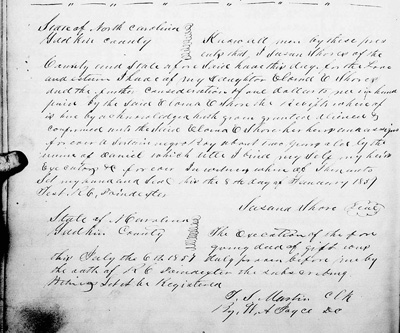 State of North Carolina
Yadkin County Know all men by these pres
ents that, I Susan Shores of the
County and State afore Said have this day for the Love
and I have of my Daughter Elvina C Shores
and the further Consideration of one dollar to me in hand
paid by the Said C Shore the Receipt where of
is here by acknowledged hath given granted
Confirmed unto the Said C Shore her heirs and assigns
for ever a Certain negro boy about two years old by the
name of Daniel which title I bind my Self my heirs
Executors & for ever In witness where of I here unto
Set my hand and Seal this the 8th day of January 1857
Test R C Poindexter
Susand Shore Seal
State of N Carolina
Yadkin County The Execution of the fore
going deed of gift was
this July the 6th 1857 duly proven before me by
the oath of R C Poindexter the subscribing
Let be Registered
T. S. Martin Clk
By W A Joyce DC